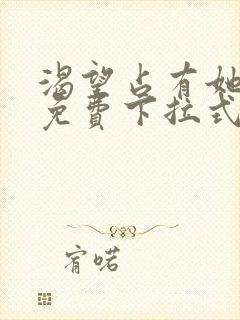 渴望占有她
免費下拉式
宥喏